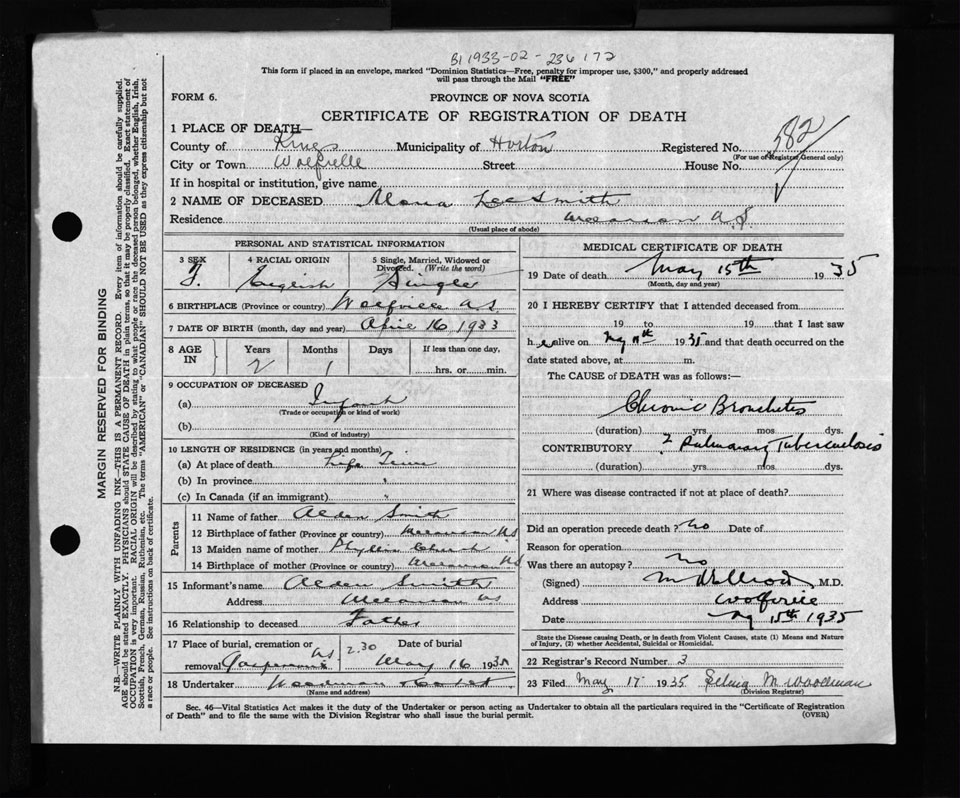 B1 1933-02-236172
This form if placed in an envelope, marked "Dominion Statistics—Free, penalty for improper use, $300," and properly addressed
will pass through the Mail "FREE"
FORM 6.
PROVINCE OF NOVA SCOTIA
CERTIFICATE OF REGISTRATION OF DEATH
582
1 PLACE OF DEATH—
County of Kings Municipality of Horton Registered No.
(For use of Registrar General only)
City or Town Street House No.
If in hospital or institution, give name
2 NAME OF DECEASED Lee Smith
Residence
(Usual place of abode)
PERSONAL AND STATISTICAL INFORMATION
3 SEX 4 RACIAL ORIGIN 5 Single, Married, Widowed or Divorced. (Write the word)
F. English Single
6 BIRTHPLACE (Province or country) Wolfville N S
7 DATE OF BIRTH (month, day and year) April 16 1933
8 AGE IN Years Months Days If less than one day,
2 1 hrs. or min.
9 OCCUPATION OF DECEASED
(a) Infant
(Trade or occupation or kind of work)
(b)
(Kind of industry)
10 LENGTH OF RESIDENCE (in years and months)
(a) At place of death Life Time
(b) In province "
(c) In Canada (if an immigrant) "
Parents
11 Name of father Alden Smith
12 Birthplace of father (Province or country) N S
13 Maiden name of mother Phyllis Church
14 Birthplace of mother (Province or country) N S
15 Informant's name Alden Smith
Address N S
16 Relationship to deceased Father
17 Place of burial, cremation or removal N S 2.30 Date of burial
May 16 1935
18 Undertaker Woodman
(Name and address)
MEDICAL CERTIFICATE OF DEATH
19 Date of death May 15th 1935
(Month, day and year)
20 I HEREBY CERTIFY that I attended deceased from
19 to 19 that I last saw
h er alive on 1935 and that death occurred on the
date stated above, at m.
The CAUSE of DEATH was as follows:—
Chronic Bronchitis
(duration) yrs. mos. dys.
CONTRIBUTORY ? Pulmonary Tuberculosis
(duration) yrs. mos. dys.
21 Where was disease contracted if not at place of death?
Did an operation precede death? No Date of
Reason for operation
Was there an autopsy? No
(Signed) M.D.
Address Wolfville
Date My 15th 1935
State the Disease causing Death, or in death from Violent Causes, state (1) Means and Nature
of Injury, (2) whether Accidental, Suicidal or Homicidal.
22 Registrar's Record Number 3
23 Filed May 17 1935 Selina M. Woodman
(Division Registrar)
Sec. 46—Vital Statistics Act makes it the duty of the Undertaker or person acting as Undertaker to obtain all the particulars required in the "Certificate of Registration
of Death" and to file the same with the Division Registrar who shall issue the burial permit.
(OVER)
MARGIN RESERVED FOR BINDING
N.B.—WRITE PLAINLY WITH UNFADING INK—THIS IS A PERMANENT RECORD. Every item of information should be carefully supplied.
AGE should be stated EXACTLY. PHYSICIANS should STATE CAUSE OF DEATH in plain terms, so that it may be properly classified. Exact statement of
OCCUPATION is very important. RACIAL ORIGIN will be described by stating to what people or race the deceased person belonged, whether English, Irish,
Scottish, French, German, Russian, Ruthenian, etc. The terms "AMERICAN" or "CANADIAN" SHOULD NOT BE USED as they express citizenship but not
a race or people. See instructions on back of certificate.